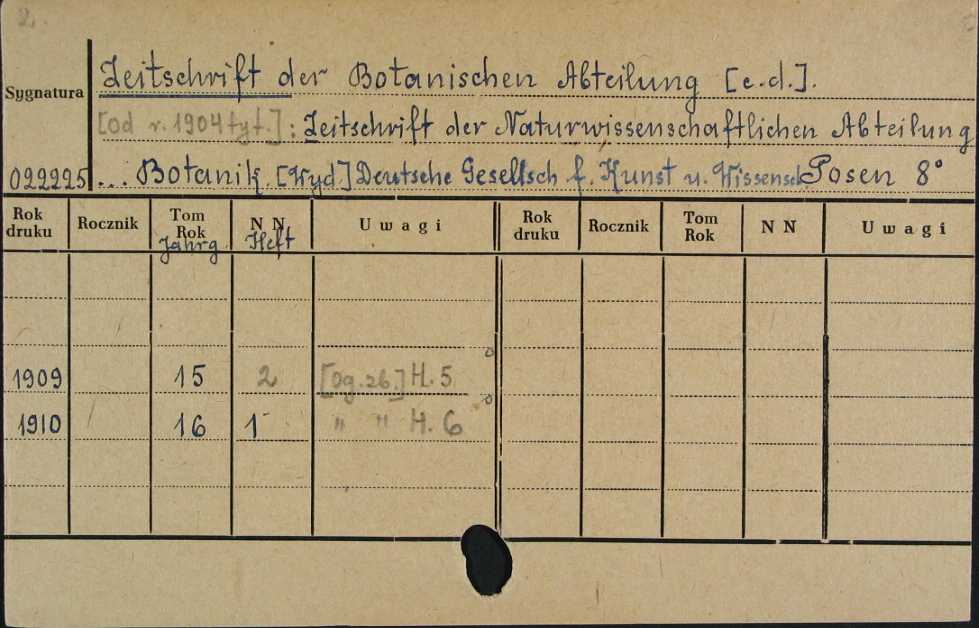 2.
Zeitschrift der Botanischen Abteilung [c.d.].
Sygnatura
[od r. 1904 tyt.]: Zeitschrift der Naturwissenschaftlichen Abteilung
022225 ... Botanik. [Wyd] Deutsche Gesellsch f. Kunst u. Wissensch. Posen 8°
Rok druku Rocznik Tom Rok Jahrg N N Heft Uwagi Rok druku Rocznik Tom Rok N N Uwagi
1909 15 2 [og. zb.] H. 5
1910 16 1 " " H. 6